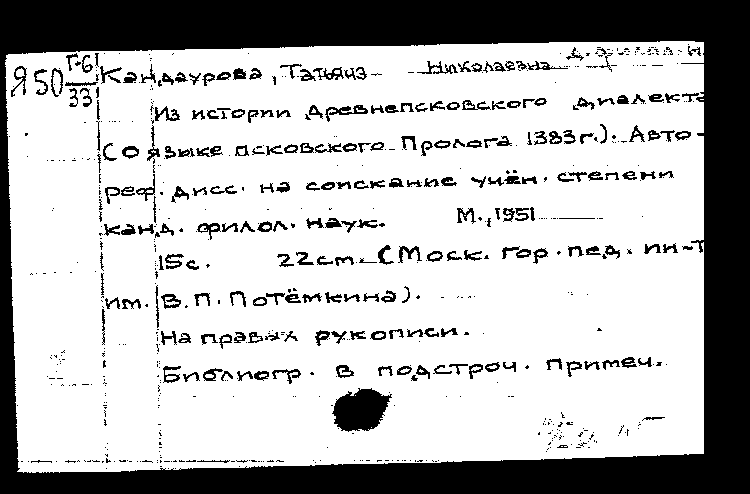 Д. филол. н.
Я50 Г-6/33 Кандаурова, Татьяна Николаевна
Из истории древнепсковского диалекта
(О языке псковского Пролога 1383г.). Авто-
реф. дисс. на соискание учён. степени
канд. филол. наук. М., 1951
15с. 22см. (Моск. гор. пед. ин-т
им. В.П. Потёмкина).
На правах рукописи.
Библиогр. в подстроч. примеч.